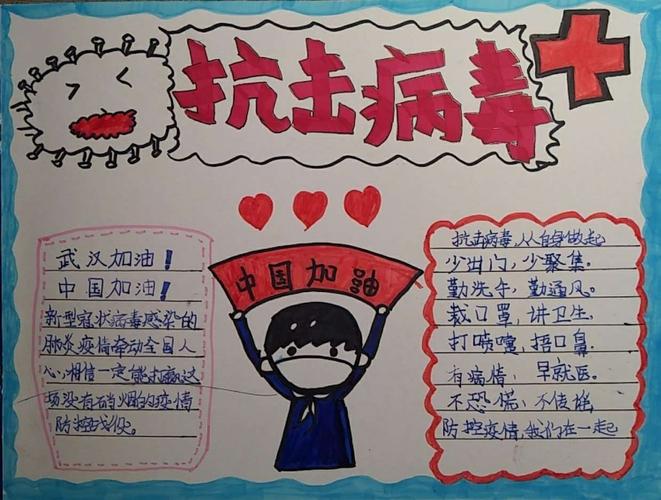 抗击病毒
中国加油
武汉加油！
中国加油！
新型冠状病毒感染的
肺炎疫情牵动全国人
心,相信一定能打赢这
场没有硝烟的疫情
防控战役。
抗击病毒,从自身做起
少出门,少聚集。
勤洗手,勤通风。
裁口罩,讲卫生。
打喷嚏,捂口鼻。
有病情,早就医。
不恐慌、不传谣
防控疫情,我们在一起